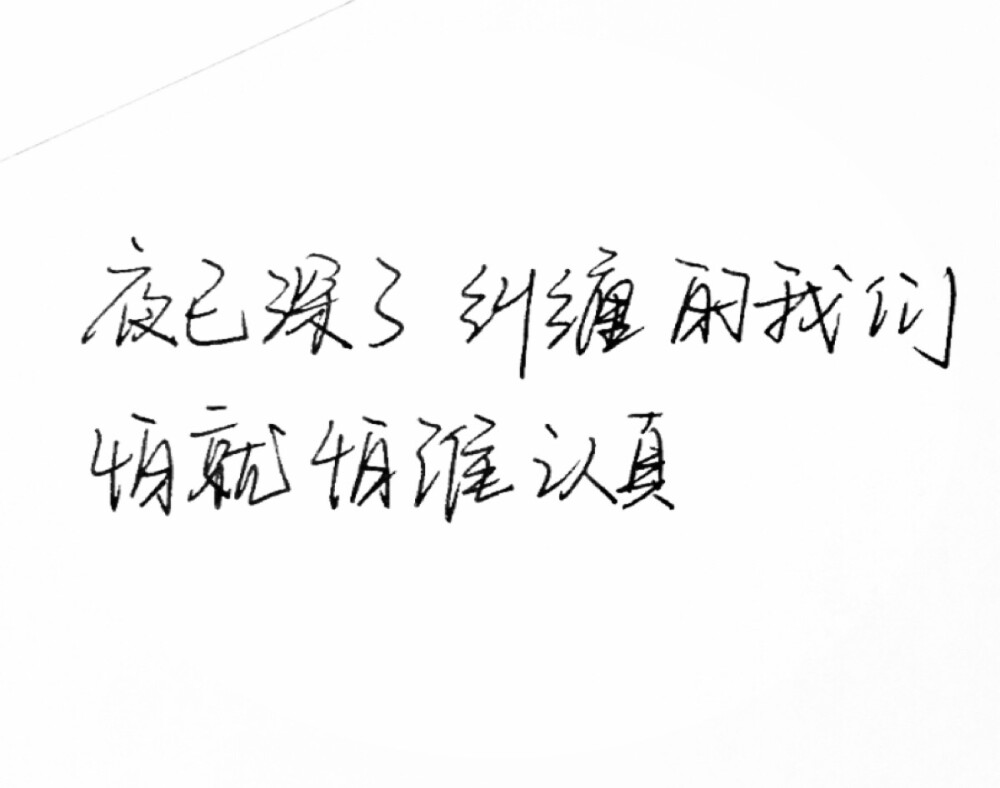 夜已深了 纠缠的我们
怕就怕谁认真